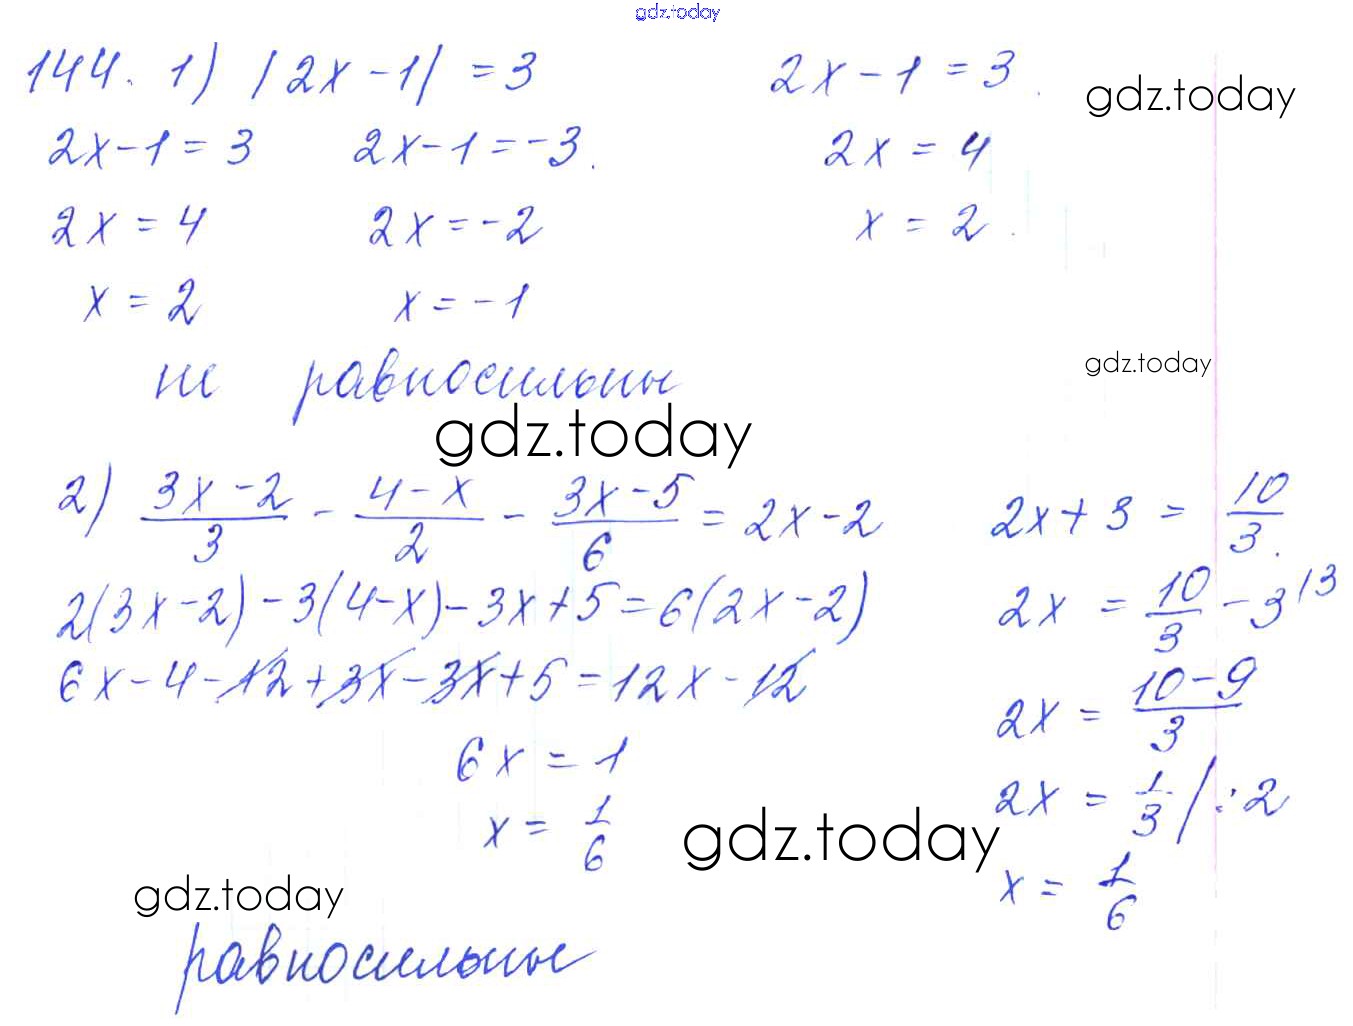 gdz.today
144. 1) |2x-1| = 3
2x-1 = 3
gdz.today
2x-1 = 3 2x-1 = -3.
2x = 4
2x = 4 2x = -2
x = 2
x = 2 x = -1
gdz.today
не равносильны
gdz.today
2) \frac{3x-2}{3} - \frac{4-x}{2} - \frac{3x-5}{6} = 2x-2
2x+3 = \frac{10}{3}.
2(3x-2)-3(4-x)-3x+5=6(2x-2)
2x = \frac{10}{3} - 3^{|3}
6x-4-12+3x-3x+5=12x-12
2x = \frac{10-9}{3}
6x = 1
2x = \frac{1}{3} | :2
x = \frac{1}{6}
gdz.today
x = \frac{1}{6}
gdz.today
равносильны